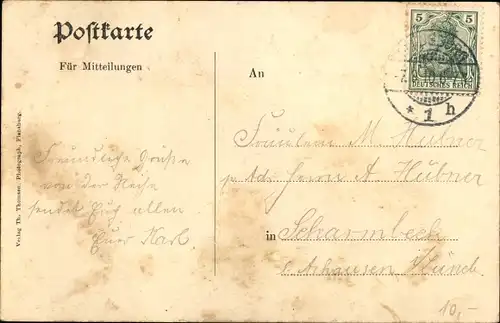 Postkarte
Für Mitteilungen
An
5 5
DEUTSCHES REICH
* 1 h
Verlag Th. Thomsen, Photograph, Flensburg.
Freundliche Grüße
von der Reise
sendet Euch allen
Euer Karl
Fräulein M Hübner
p. Adr. Herrn A Hübner
in Scharmbeck
10,-